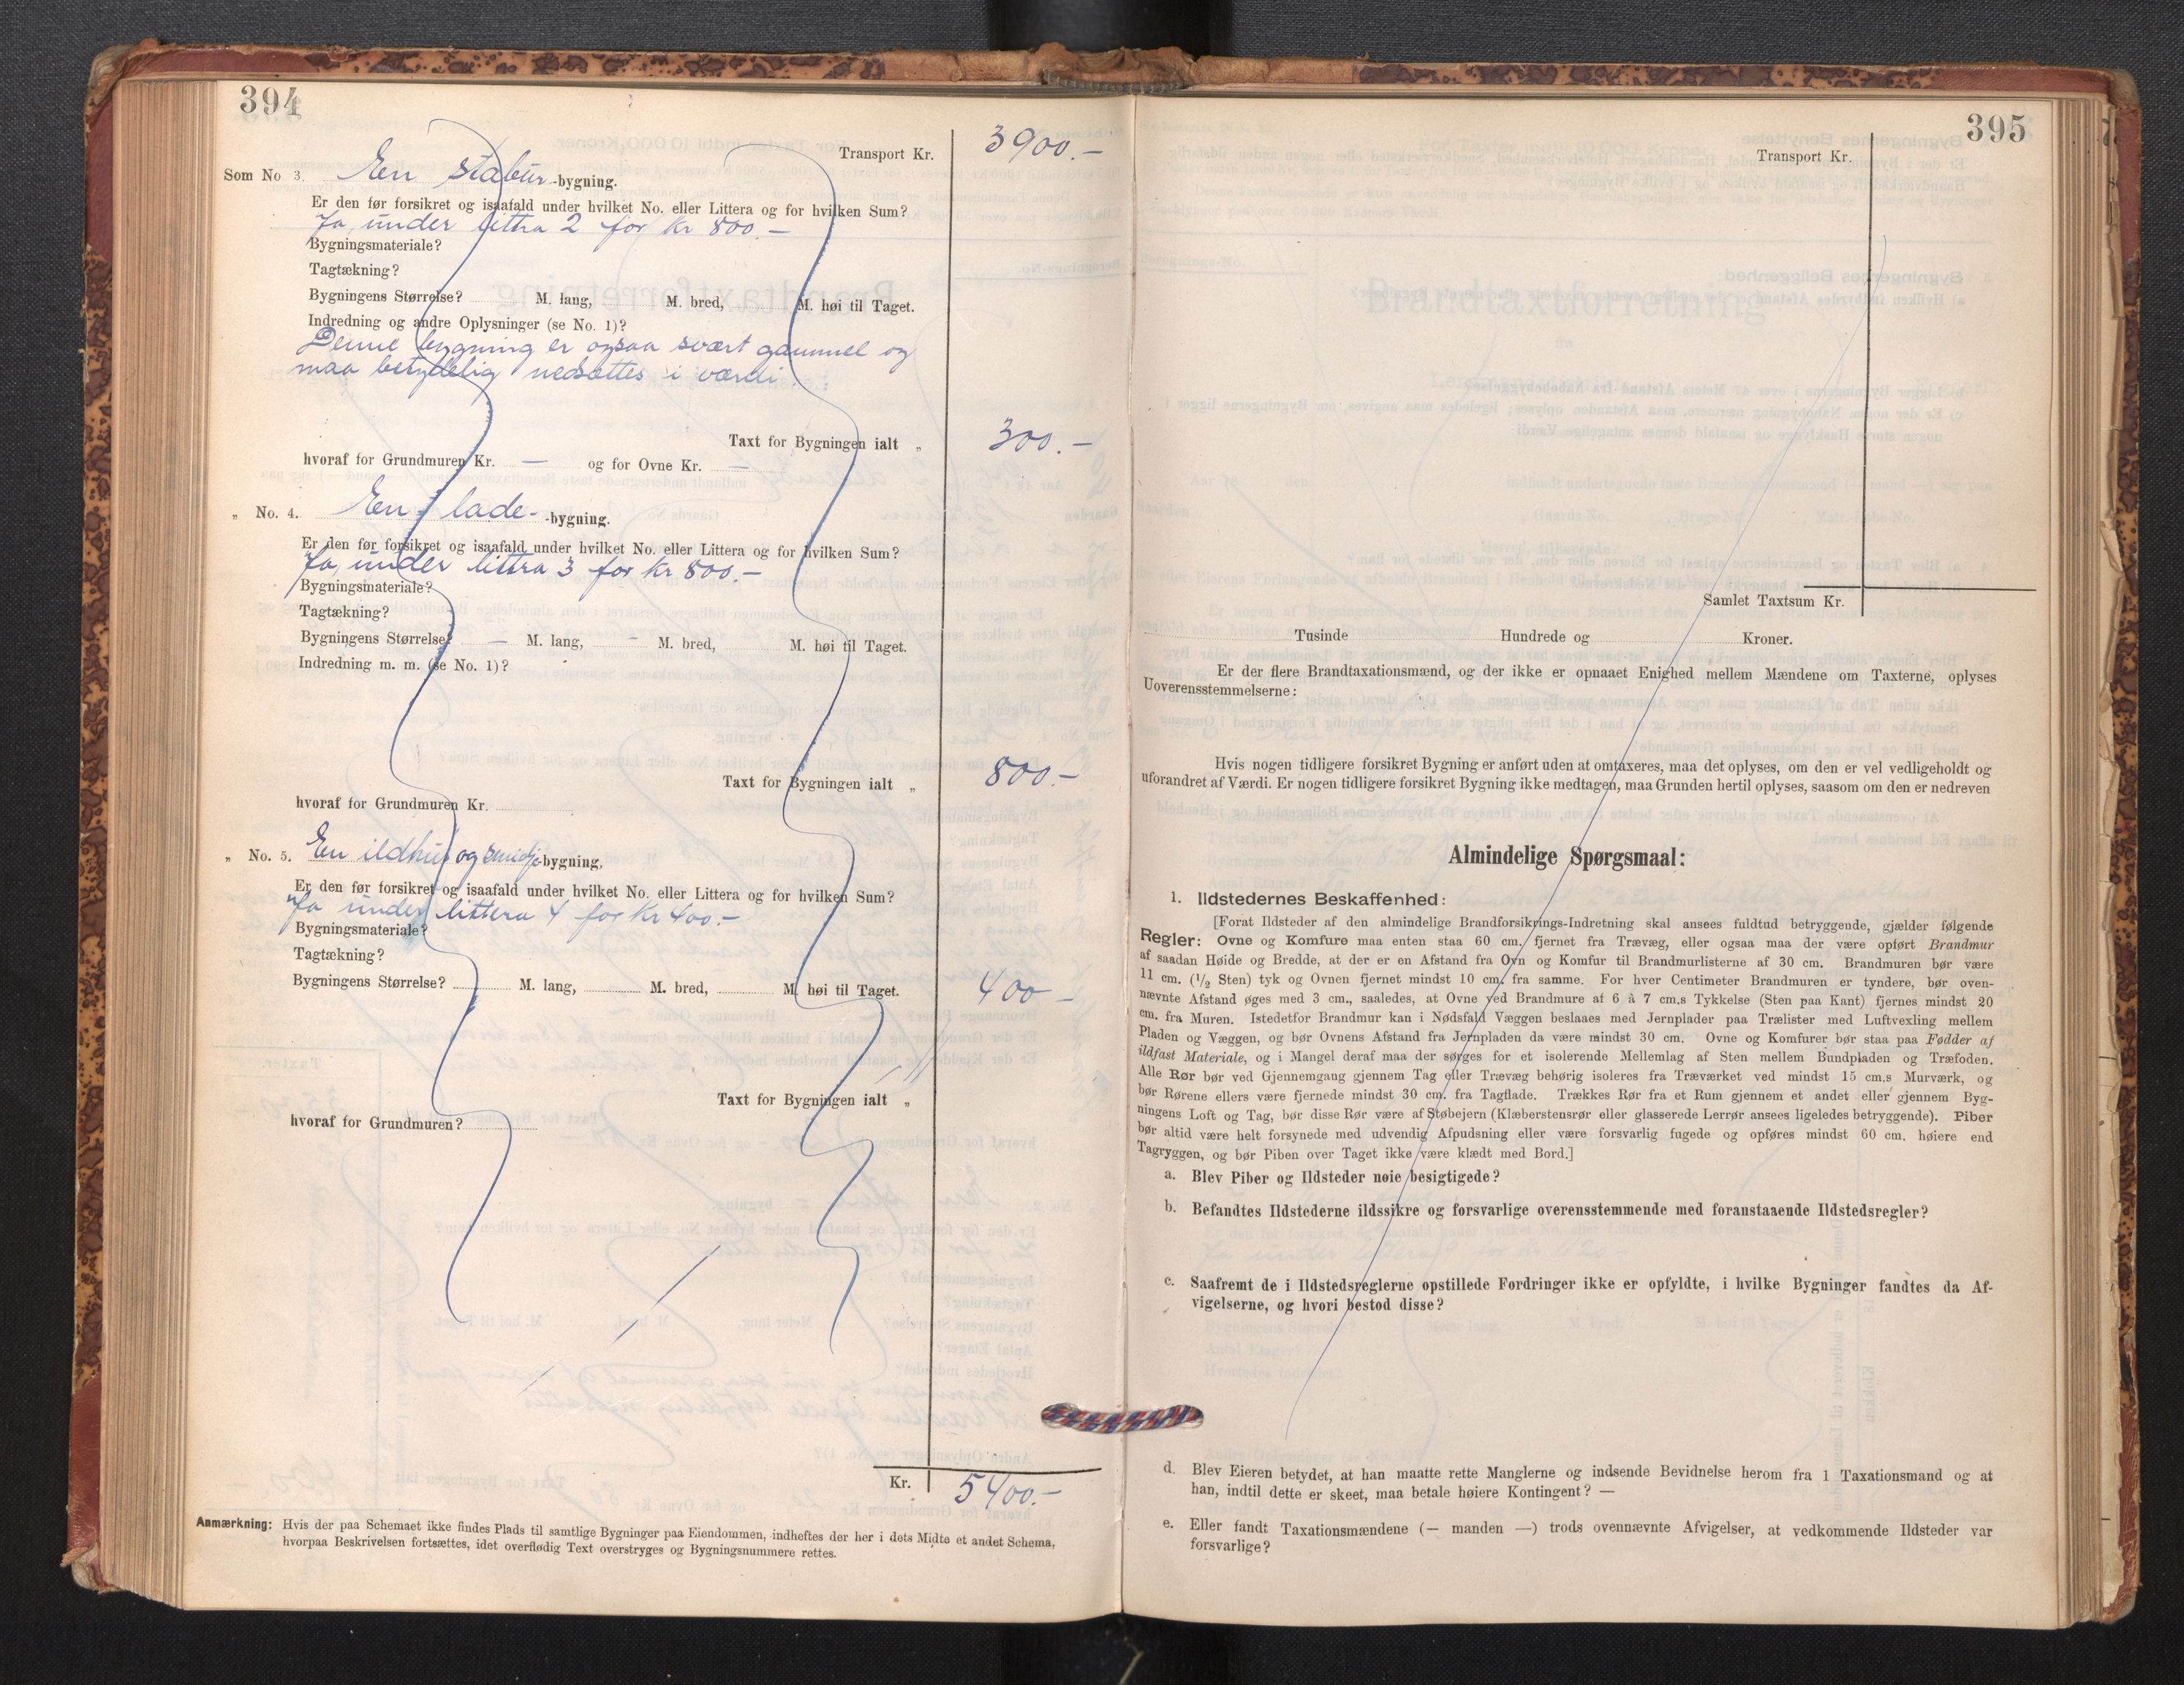 394
Transport Kr. 3900.—
Som No 3. En stabur -bygning.
Er den før forsikret og isaafald under hvilket No. eller Littera og for hvilken Sum?
Ja, under littra 2 for Kr 800.—
Bygningsmateriale?
Tagtækning?
Bygningens Størrelse? M. lang, M. bred, M. høi til Taget.
Indredning og andre Oplysninger (se No. 1)?
Denne bygning er ogsaa svært gammel og
maa betydelig nedsættes i værdi.
Taxt for Bygningen ialt „ 300.—
hvoraf for Grundmuren Kr. — og for Ovne Kr. —
„ No. 4. En lade- -bygning.
Er den før forsikret og isaafald under hvilket No. eller Littera og for hvilken Sum?
Ja, under littra 3 for Kr 800.—
Bygningsmateriale?
Tagtækning?
Bygningens Størrelse? — M. lang, — M. bred, M. høi til Taget.
Indredning m. m. (se No. 1)?
Taxt for Bygningen ialt „ 800.—
hvoraf for Grundmuren Kr.
„ No. 5. En ildhus og smidje-bygning,
Er den før forsikret og isaafald under hvilket No. eller Littera og for hvilken Sum?
Ja under littera 4 for Kr 400.—
Bygningsmateriale?
Tagtækning?
Bygningens Størrelse? M. lang, M. bred, M. høi til Taget. 400 —
Taxt for Bygningen ialt „
hvoraf for Grundmuren?
Kr. 5400.—
Anmærkning: Hvis der paa Schemaet ikke findes Plads til samtlige Bygninger paa Eiendommen, indheftes der her i dets Midte et andet Schema,
hvorpaa Beskrivelsen fortsættes, idet overflødig Text overstryges og Bygningsnummere rettes.
395
Transport Kr.
Samlet Taxtsum Kr.
Tusinde Hundrede og Kroner.
Er der flere Brandtaxationsmænd, og der ikke er opnaaet Enighed mellem Mændene om Taxterne, oplyses
Uoverensstemmelserne:
Hvis nogen tidligere forsikret Bygning er anført uden at omtaxeres, maa det oplyses, om den er vel vedligeholdt og
uforandret af Værdi. Er nogen tidligere forsikret Bygning ikke medtagen, maa Grunden hertil oplyses, saasom om den er nedreven
Almindelige Spørgsmaal:
1. Ildstedernes Beskaffenhed:
[Forat Ildsteder af den almindelige Brandforsikrings-Indretning skal ansees fuldtud betryggende, gjælder følgende
Regler: Ovne og Komfure maa enten staa 60 cm. fjernet fra Trævæg, eller ogsaa maa der være opført Brandmur
af saadan Høide og Bredde, at der er en Afstand fra Ovn og Komfur til Brandmurlisterne af 30 cm. Brandmuren bør være
11 cm. (1/2 Sten) tyk og Ovnen fjernet mindst 10 cm. fra samme. For hver Centimeter Brandmuren er tyndere, bør oven-
nævnte Afstand øges med 3 cm., saaledes, at Ovne ved Brandmure af 6 à 7 cm.s Tykkelse (Sten paa Kant) fjernes mindst 20
cm. fra Muren. Istedetfor Brandmur kan i Nødsfald Væggen beslaaes med Jernplader paa Trælister med Luftvexling mellem
Pladen og Væggen, og bør Ovnens Afstand fra Jernpladen da være mindst 30 cm. Ovne og Komfurer bør staa paa Fødder af
ildfast Materiale, og i Mangel deraf maa der sørges for et isolerende Mellemlag af Sten mellem Bundpladen og Træfoden.
Alle Rør bør ved Gjennemgang gjennem Tag eller Trævæg behørig isoleres fra Træværket ved mindst 15 cm.s Murværk, og
bør Rørene ellers være fjernede mindst 30 cm. fra Tagflade. Trækkes Rør fra et Rum gjennem et andet eller gjennem Byg-
ningens Loft og Tag, bør disse Rør være af Støbejern (Klæberstensrør eller glasserede Lerrør ansees ligeledes betryggende). Piber
bør altid være helt forsynede med udvendig Afpudsning eller være forsvarlig fugede og opføres mindst 60 cm. høiere end
Tagryggen, og bør Piben over Taget ikke være klædt med Bord.]
a. Blev Piber og Ildsteder nøie besigtigede?
b. Befandtes Ildstederne ildssikre og forsvarlige overensstemmende med foranstaaende Ildstedsregler?
c. Saafremt de i Ildstedsreglerne opstillede Fordringer ikke er opfyldte, i hvilke Bygninger fandtes da Af-
vigelserne, og hvori bestod disse?
d. Blev Eieren betydet, at han maatte rette Manglerne og indsende Bevidnelse herom fra 1 Taxationsmand og at
han, indtil dette er skeet, maa betale høiere Kontingent? —
e. Eller fandt Taxationsmændene (— manden —) trods ovennævnte Afvigelser, at vedkommende Ildsteder var
forsvarlige?